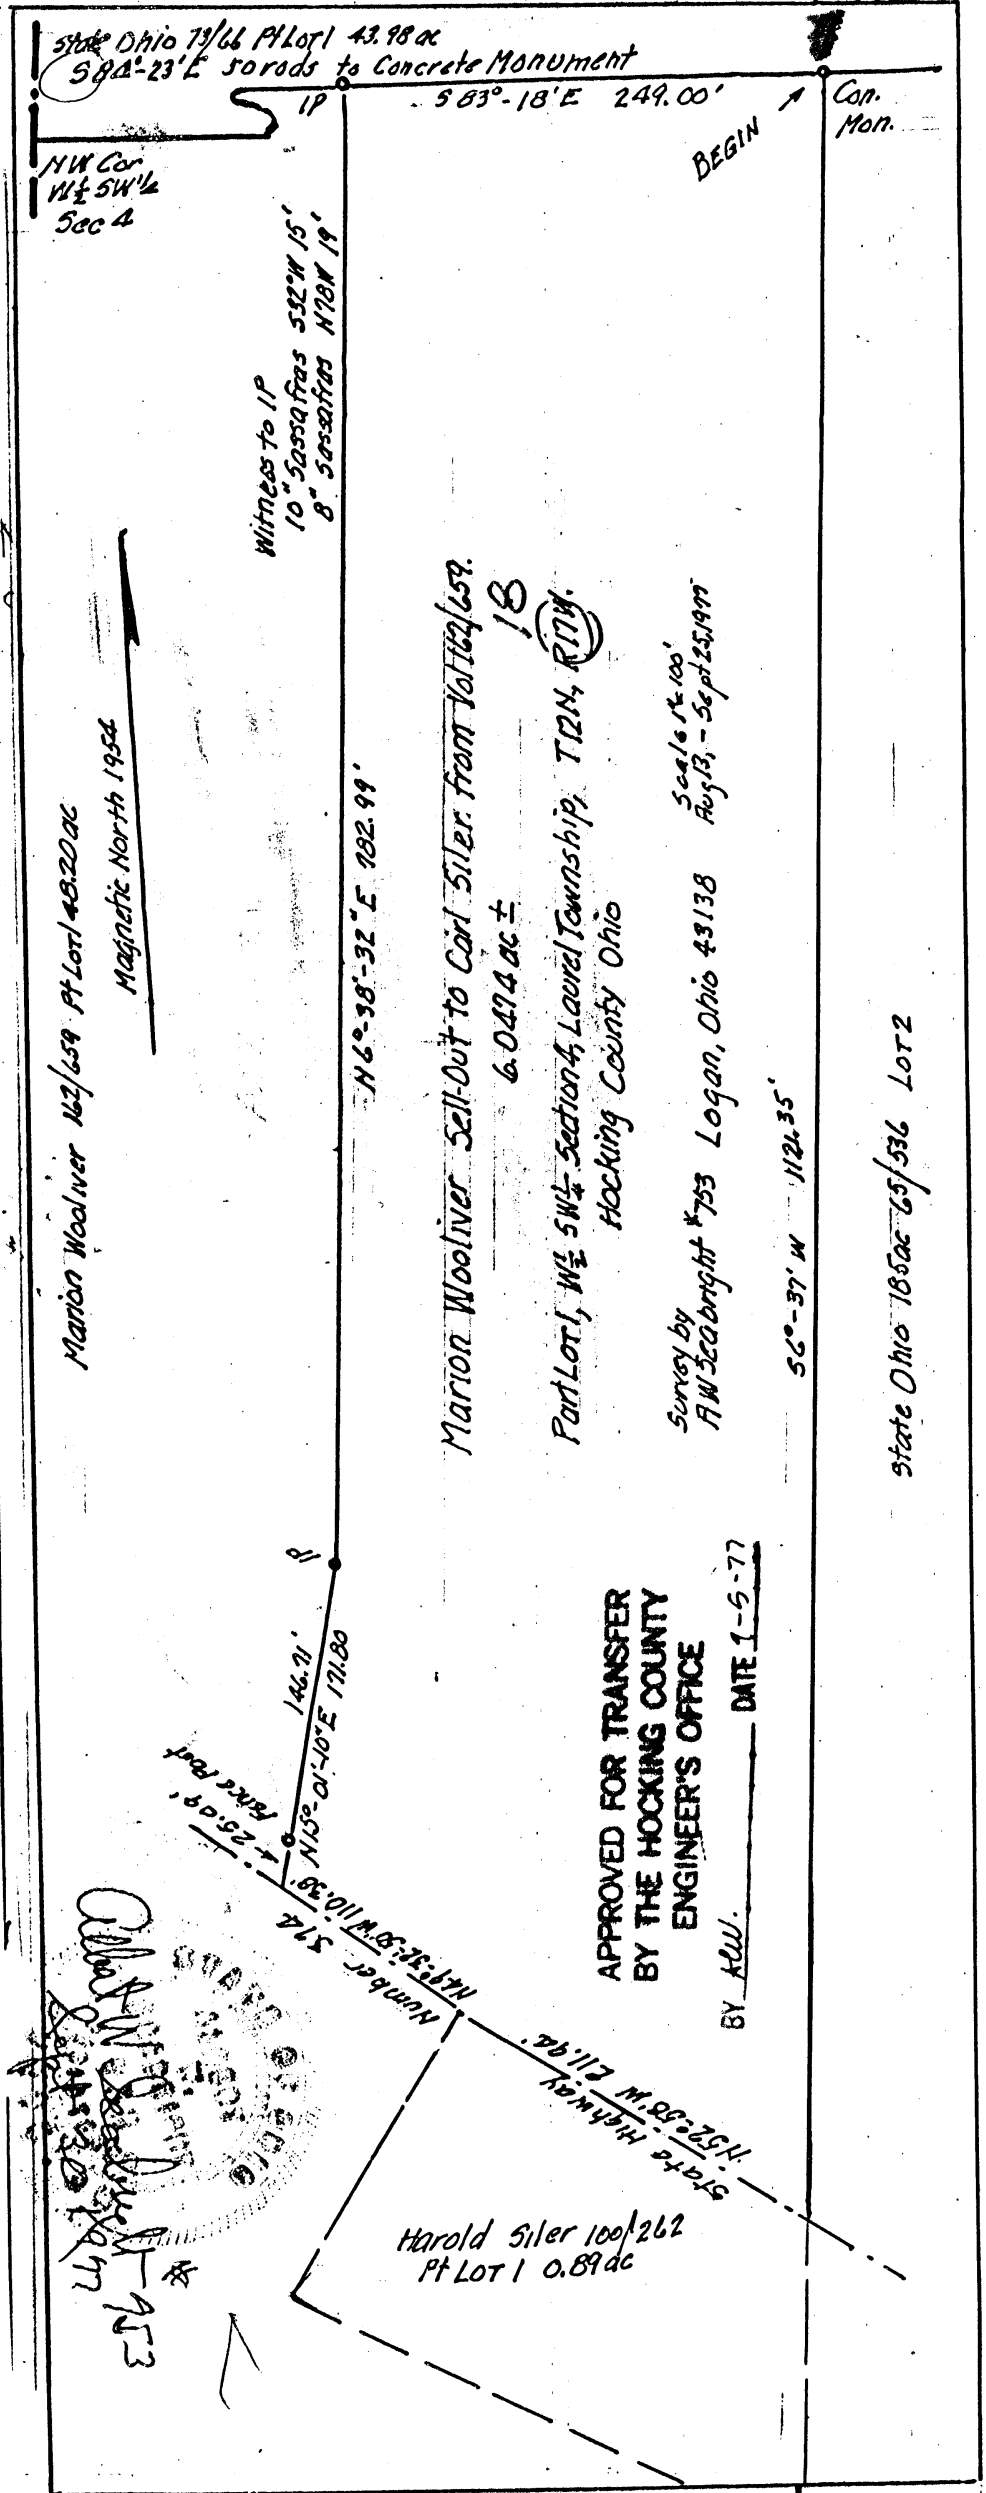 State Ohio 73/66 Pt Lot 1 43.98 ac
S84°-23'E 50 rods to Concrete Monument
IP
S83°-18'E 249.00'
BEGIN
Con.
Mon.
NW Cor
W½ SW¼
Sec 4
Witness to IP
10" Sassafras S32°W 15'
8" Sassafras N78W 19'
Marion Wooliver 162/659 Pt Lot 1 48.20 ac
Magnetic North 1954
N6°-38'-32"E 782.99'
Marion Wooliver Sell-Out to Carl Siler from Vol 162/659.
6.0474 ac ±
18
Part Lot 1, W½ SW¼ Section 4, Laurel Township, T12N, R17W.
Hocking County Ohio
Survey by
AW Seabright #753 Logan, Ohio 43138
Scale 1"=100'
Aug 13, - Sept 25, 1977
S6°-37'W 1121.35'
State Ohio 185ac 65/536 LOT 2
IP
146.71'
N15°-01'-10"E 171.80
25.09'
Fence Post
N49°-32'-50"W 110.30'
State Highway Number 374
N52°-58'W 211.92'
APPROVED FOR TRANSFER
BY THE HOCKING COUNTY
ENGINEER'S OFFICE
BY DATE 7-5-77
Harold Siler 100/262
Pt LOT 1 0.89 ac
753